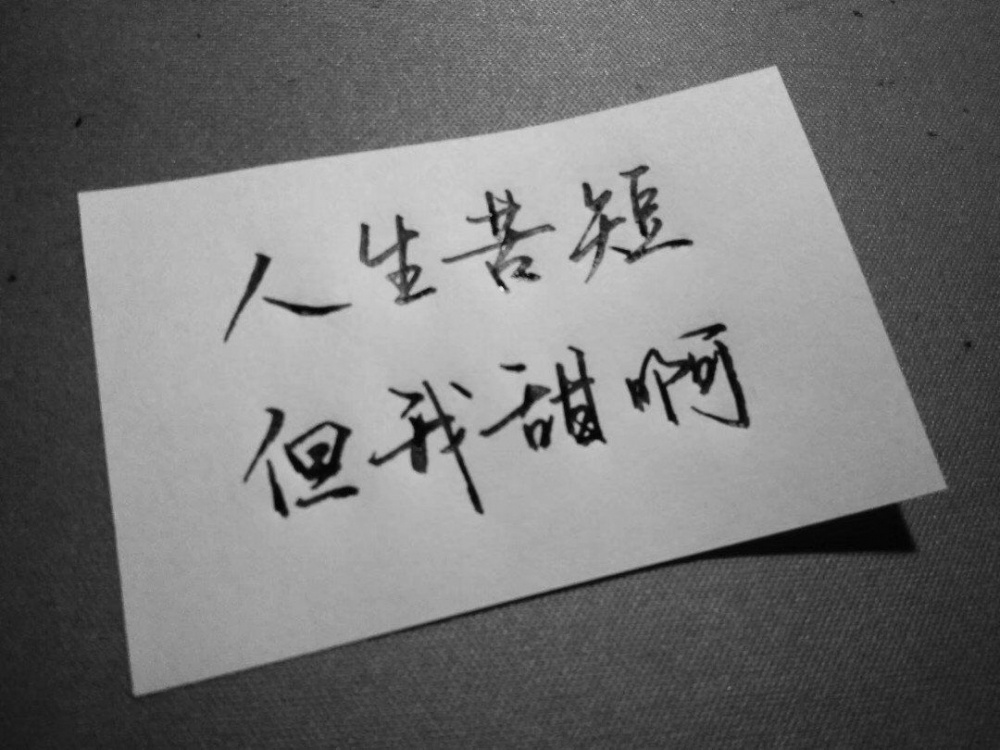 人生苦短
但我甜啊